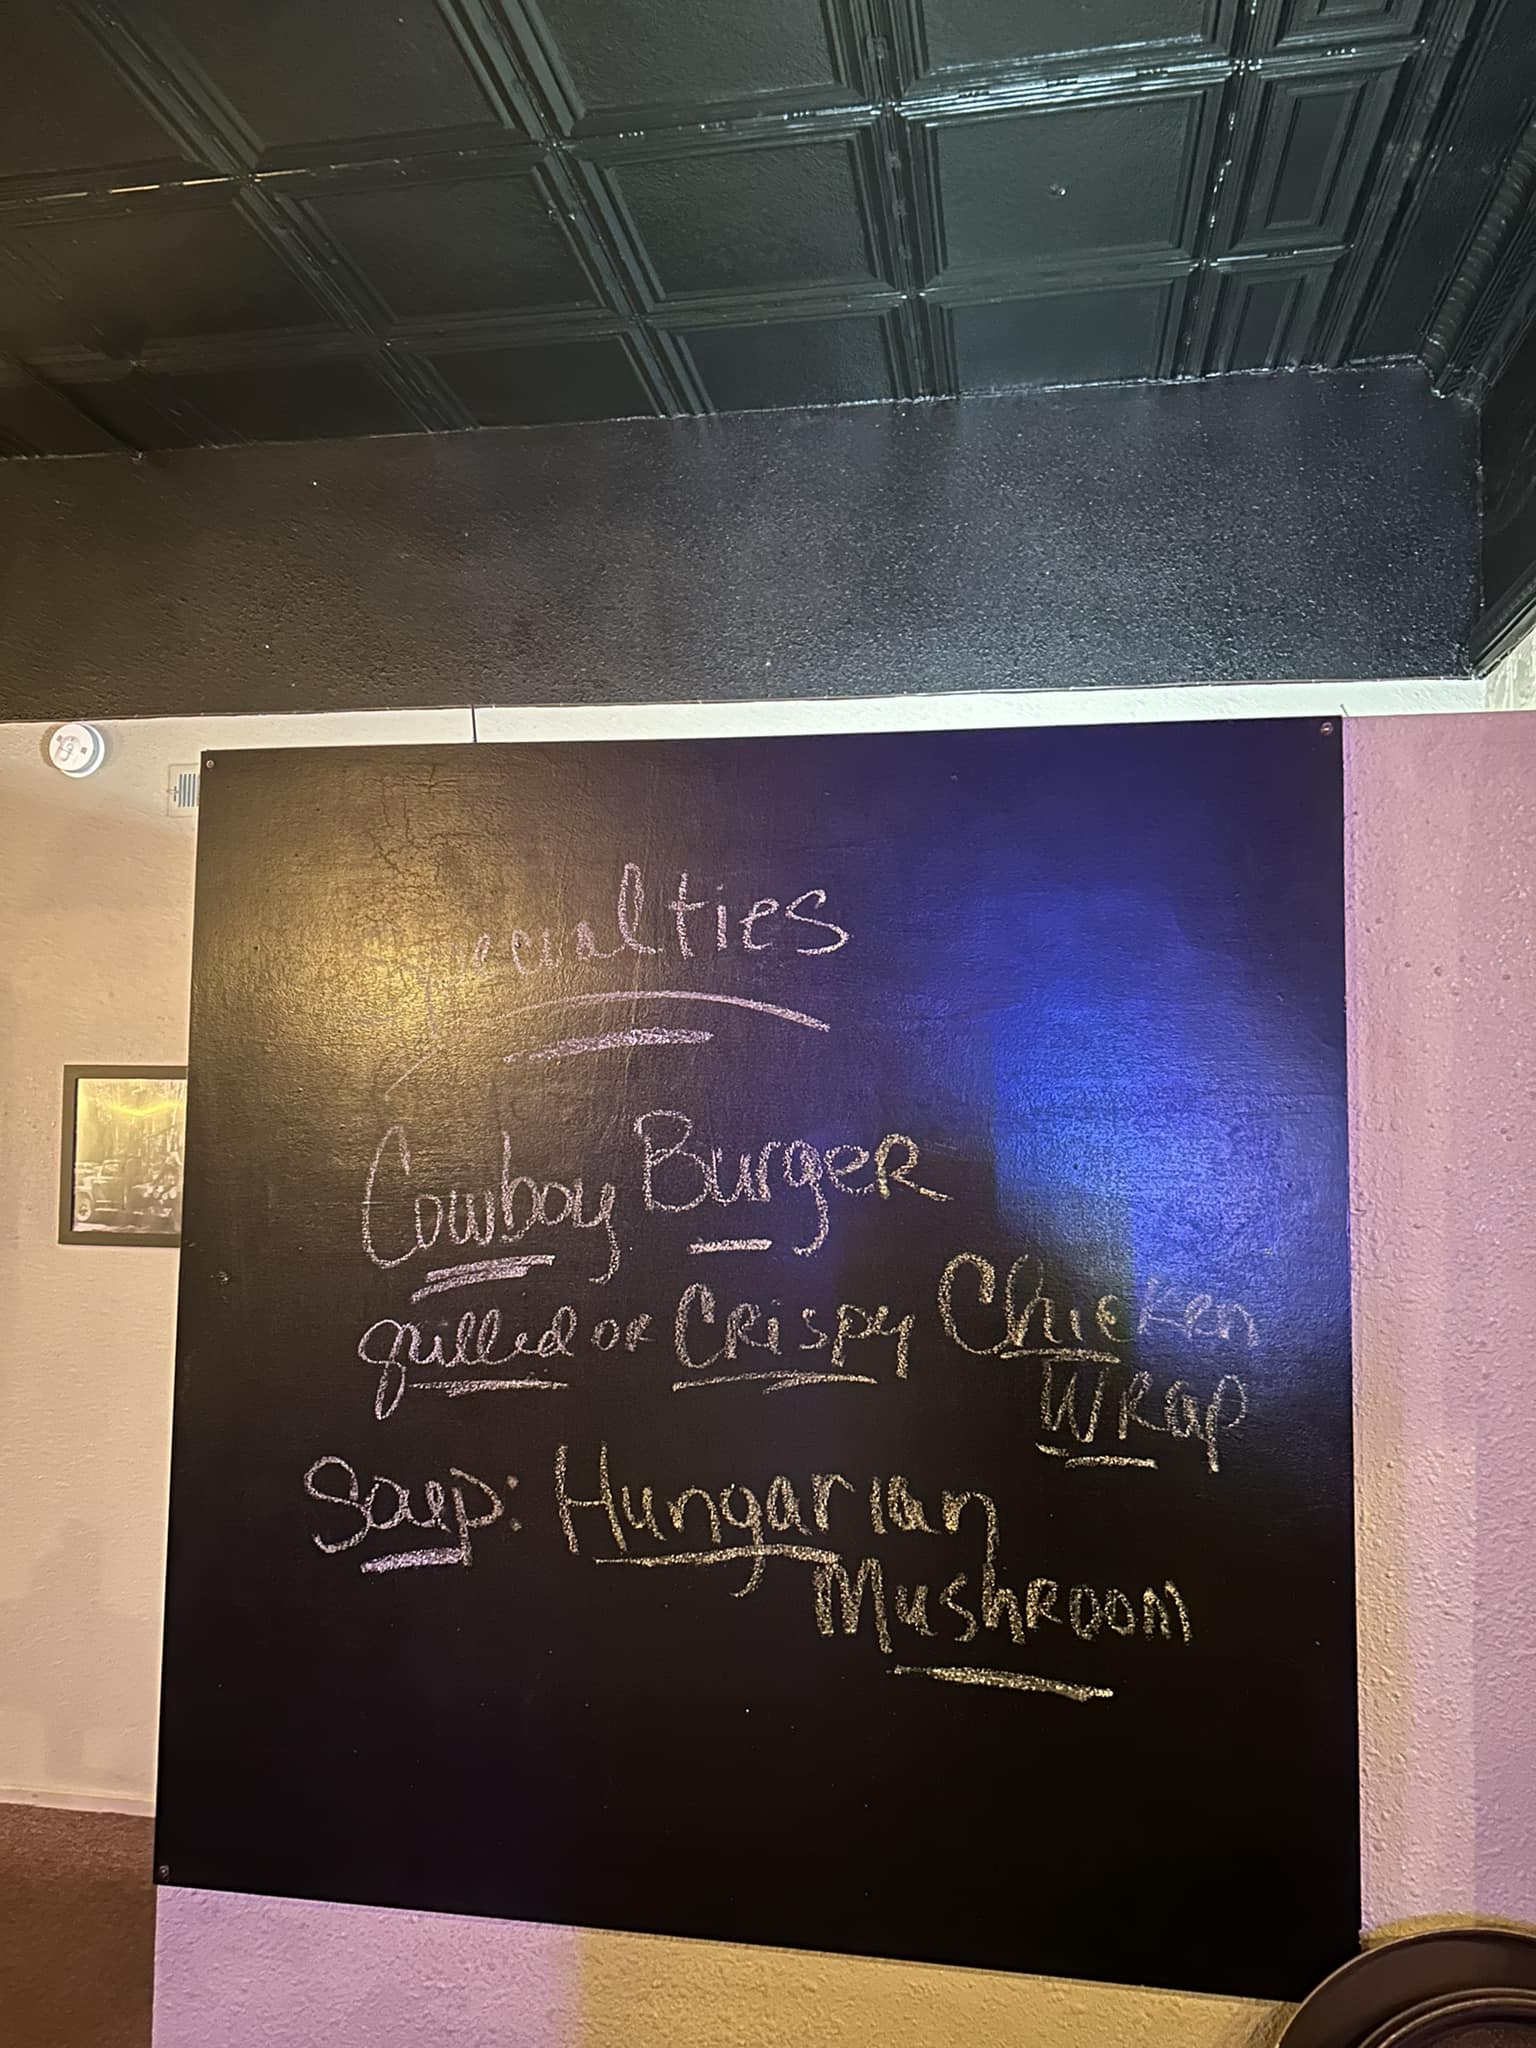 Specialties
Cowboy Burger
grilled or Crispy Chicken
Wrap
Soup: Hungarian
Mushroom